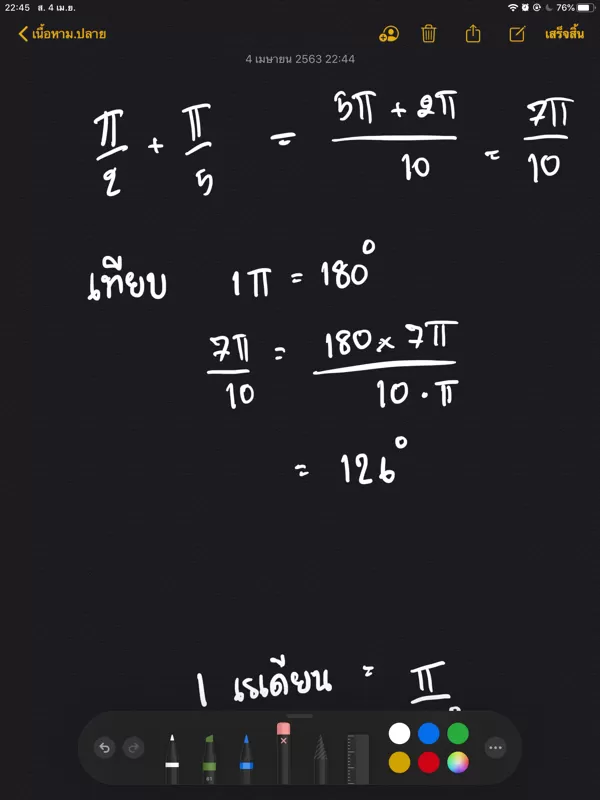 22:45 ส. 4 เม.ย. 76%
เนื้อหาม.ปลาย เสร็จสิ้น
4 เมษายน 2563 22:44
π/2 + π/5 = (5π + 2π)/10 = 7π/10
เทียบ 1π = 180°
7π/10 = (180 × 7π)/(10 · π)
= 126°
1 เรเดียน = π